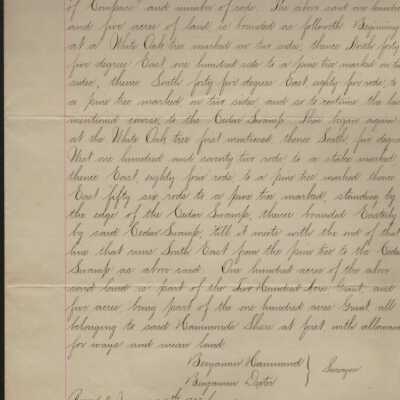 of Compass and number of rods. The above said one hundred
and five acres of land is bounded as followeth Beginning
at a White Oak tree marked on two sides, thence North forty
five degrees East one hundred rods to a pine tree marked on two
sides, thence South forty five degrees East eighty rods, to
a pine tree marked on two sides, and so to continue the last
mentioned course, to the Cedar Swamp. Then began again
at the White Oak tree first mentioned, thence South, five degrees
West one hundred and seventy two rods to a stake marked
thence East, eighty four rods to a pine tree marked thence
East fifty six rods to a pine tree marked, standing by
the edge of the Cedar Swamp, thence bounded Easterly
by said Cedar Swamp, till it meets with the end of that
line that runs South East from the pine tree to the Cedar
Swamp as above said. One hundred acres of the above
said land is part of the Two Hundred Acre Grant, and
five acres, being part of the one hundred acre Grant, all
belonging to said Hammonds Share at first, with allowance
for ways and mean land
Benjamin Hammond } Surveyor
Benjamin Dexter